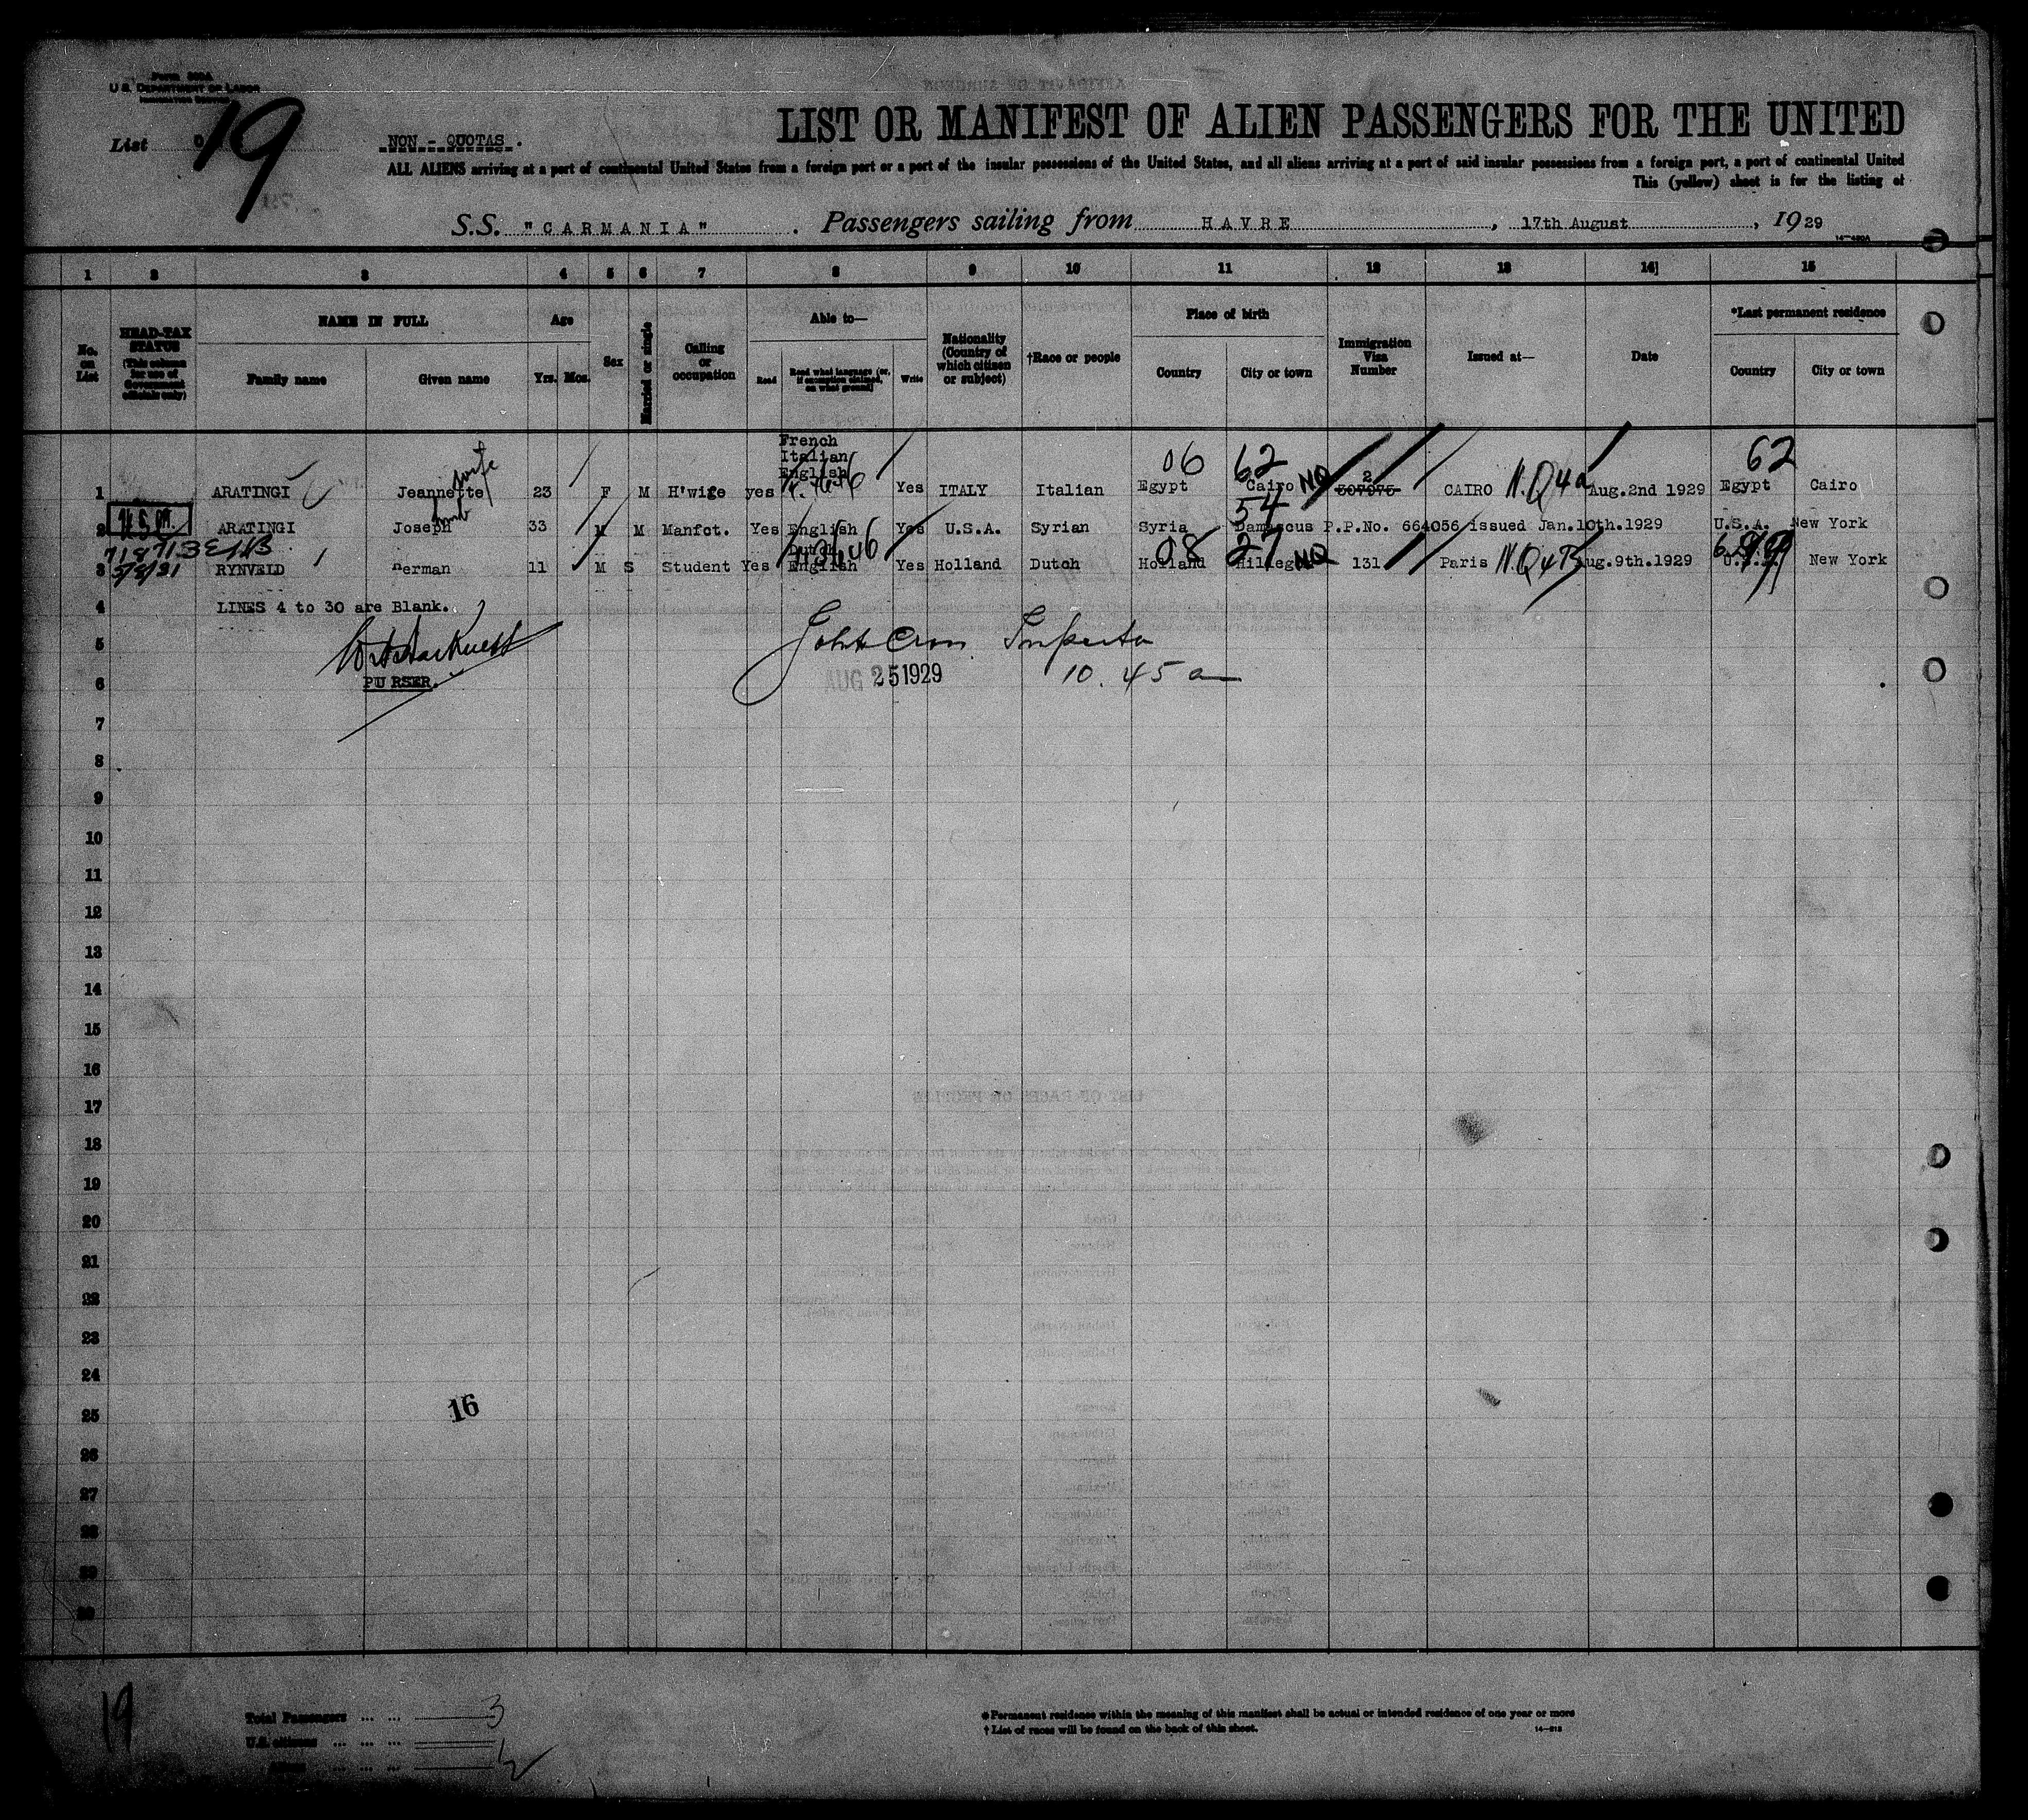 Form 500A
U.S. DEPARTMENT OF LABOR
IMMIGRATION SERVICE
List 19
NON - QUOTAS.
LIST OR MANIFEST OF ALIEN PASSENGERS FOR THE UNITED
ALL ALIENS arriving at a port of continental United States from a foreign port or a port of the insular possessions of the United States, and all aliens arriving at a port of said insular possessions from a foreign port, a port of continental United
This (yellow) sheet is for the listing of
S.S. "CARMANIA". Passengers sailing from HAVRE, 17th August, 1929
1 2 3 4 5 6 7 8 9 10 11 12 13 14 15
No. on List
HEAD-TAX STATUS (This column for use of Government officials only)
NAME IN FULL
Family name Given name
Age
Yrs. Mos.
Sex
Married or single
Calling or occupation
Able to—
Read Read what language (or, if exemption claimed, on what ground) Write
Nationality (Country of which citizen or subject)
†Race or people
Place of birth
Country City or town
Immigration Visa Number
Issued at—
Date
*Last permanent residence
Country City or town
1 ARATINGI Jeannette wife 23 F M H'wife yes French Italian English Yes ITALY Italian 06 Egypt 62 Cairo NQ 2 507975 CAIRO N.Q 4a Aug.2nd 1929 62 Egypt Cairo
2 U.S.C. ARATINGI Joseph 33 M M Manfct. Yes English Yes U.S.A. Syrian Syria 54 Damascus P.P.No. 664056 issued Jan.10th.1929 U.S.A. New York
3 RYNVELD Herman 11 M S Student Yes Dutch English Yes Holland Dutch 08 Holland 27 Hillegom NQ 131 Paris N.Q 4B Aug.9th.1929 U.S.A. New York
4 LINES 4 to 30 are Blank.
5
6 PURSER.
AUG 25 1929
Inspector
10.45 a
7
8
9
10
11
12
13
14
15
16
17
18
19
20
21
22
23
24
25
16
26
27
28
29
30
19
Total Passengers ... ... 3
U.S. citizens ... ... ... 1
Aliens ... ... ... 2
*Permanent residence within the meaning of this manifest shall be actual or intended residence of one year or more
†List of races will be found on the back of this sheet.